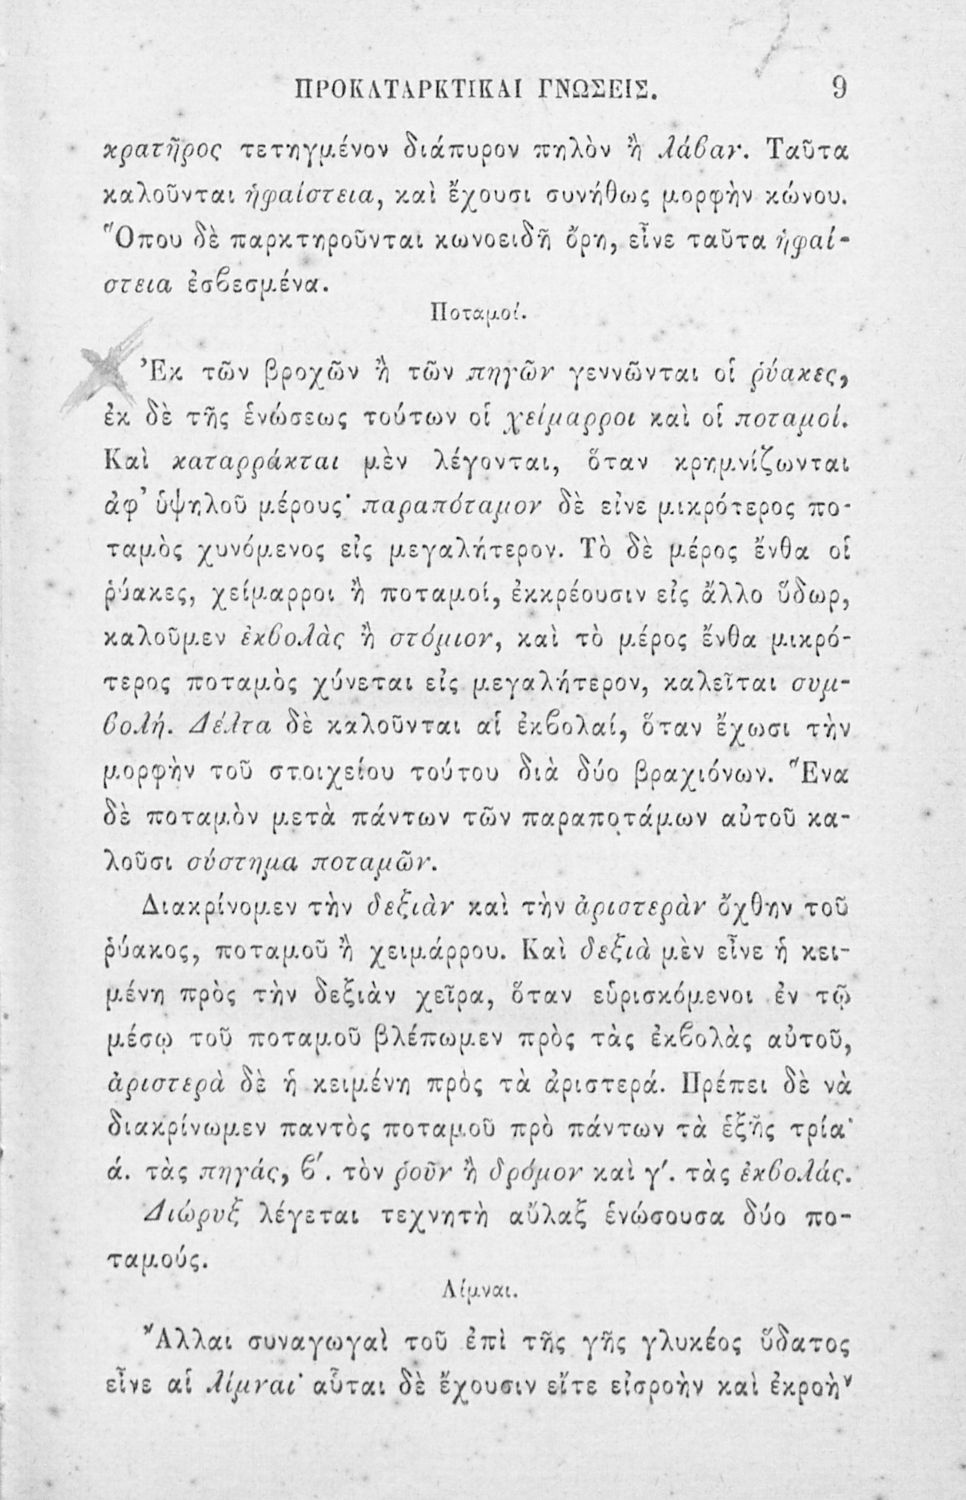 ΠΡΟΚΑΤΑΡΚΤΙΚΑΙ ΓΝΩΣΕΙΣ. 9
κρατῆρος τετηγμένον διάπυρον πηλὸν ἢ λάβαν. Ταῦτα
καλοῦνται ἡφαίστεια, καὶ ἔχουσι συνήθως μορφὴν κώνου.
Ὅπου δὲ παρκτηροῦνται κωνοειδῆ ὄρη, εἶνε ταῦτα ἡφαί-
στεια ἐσϐεσμένα.
Ποταμοί.
Ἐκ τῶν βροχῶν ἢ τῶν πηγῶν γεννῶνται οἱ ῥύακες,
ἐκ δὲ τῆς ἑνώσεως τούτων οἱ χείμαρροι καὶ οἱ ποταμοί.
Καὶ καταρράκται μὲν λέγονται, ὅταν κρημνίζωνται
ἀφ’ ὑψηλοῦ μέρους· παραπόταμον δὲ εἶνε μικρότερος πο-
ταμὸς χυνόμενος εἰς μεγαλήτερον. Τὸ δὲ μέρος ἔνθα οἱ
ῥύακες, χείμαρροι ἢ ποταμοί, ἐκκρέουσιν εἰς ἄλλο ὕδωρ,
καλοῦμεν ἐκϐολὰς ἢ στόμιον, καὶ τὸ μέρος ἔνθα μικρό-
τερος ποταμὸς χύνεται εἰς μεγαλήτερον, καλεῖται συμ-
ϐολή. Δέλτα δὲ καλοῦνται αἱ ἐκϐολαί, ὅταν ἔχωσι τὴν
μορφὴν τοῦ στοιχείου τούτου διὰ δύο βραχιόνων. Ἕνα
δὲ ποταμὸν μετὰ πάντων τῶν παραποτάμων αὐτοῦ κα-
λοῦσι σύστημα ποταμῶν.
Διακρίνομεν τὴν δεξιὰν καὶ τὴν ἀριστερὰν ὄχθην τοῦ
ῥύακος, ποταμοῦ ἢ χειμάρρου. Καὶ δεξιὰ μὲν εἶνε ἡ κει-
μένη πρὸς τὴν δεξιὰν χεῖρα, ὅταν εὑρισκόμενοι ἐν τῷ
μέσῳ τοῦ ποταμοῦ βλέπωμεν πρὸς τὰς ἐκϐολὰς αὐτοῦ,
ἀριστερὰ δὲ ἡ κειμένη πρὸς τὰ ἀριστερά. Πρέπει δὲ νὰ
διακρίνωμεν παντὸς ποταμοῦ πρὸ πάντων τὰ ἑξῆς τρία·
ά. τὰς πηγάς, ϐ′. τὸν ῥοῦν ἢ δρόμον καὶ γ′. τὰς ἐκϐολάς.
Διώρυξ λέγεται τεχνητὴ αὖλαξ ἑνώσουσα δύο πο-
ταμούς.
Λίμναι.
Ἄλλαι συναγωγαὶ τοῦ ἐπὶ τῆς γῆς γλυκέος ὕδατος
εἶνε αἱ λίμναι· αὗται δὲ ἔχουσιν εἴτε εἰσροὴν καὶ ἐκροὴν